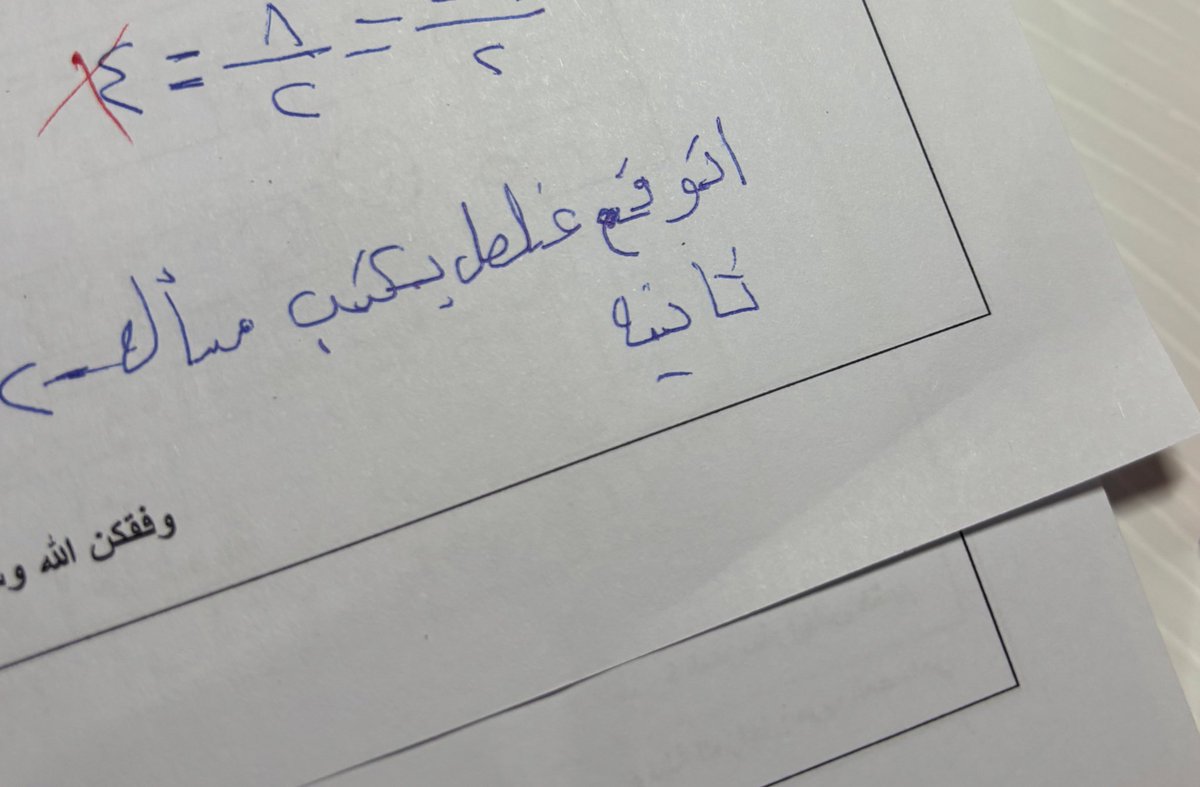 ٢ = ٨/٢ = ٤
اتوقع غلط يكتب مسألة
ثانيه
وفقكن الله